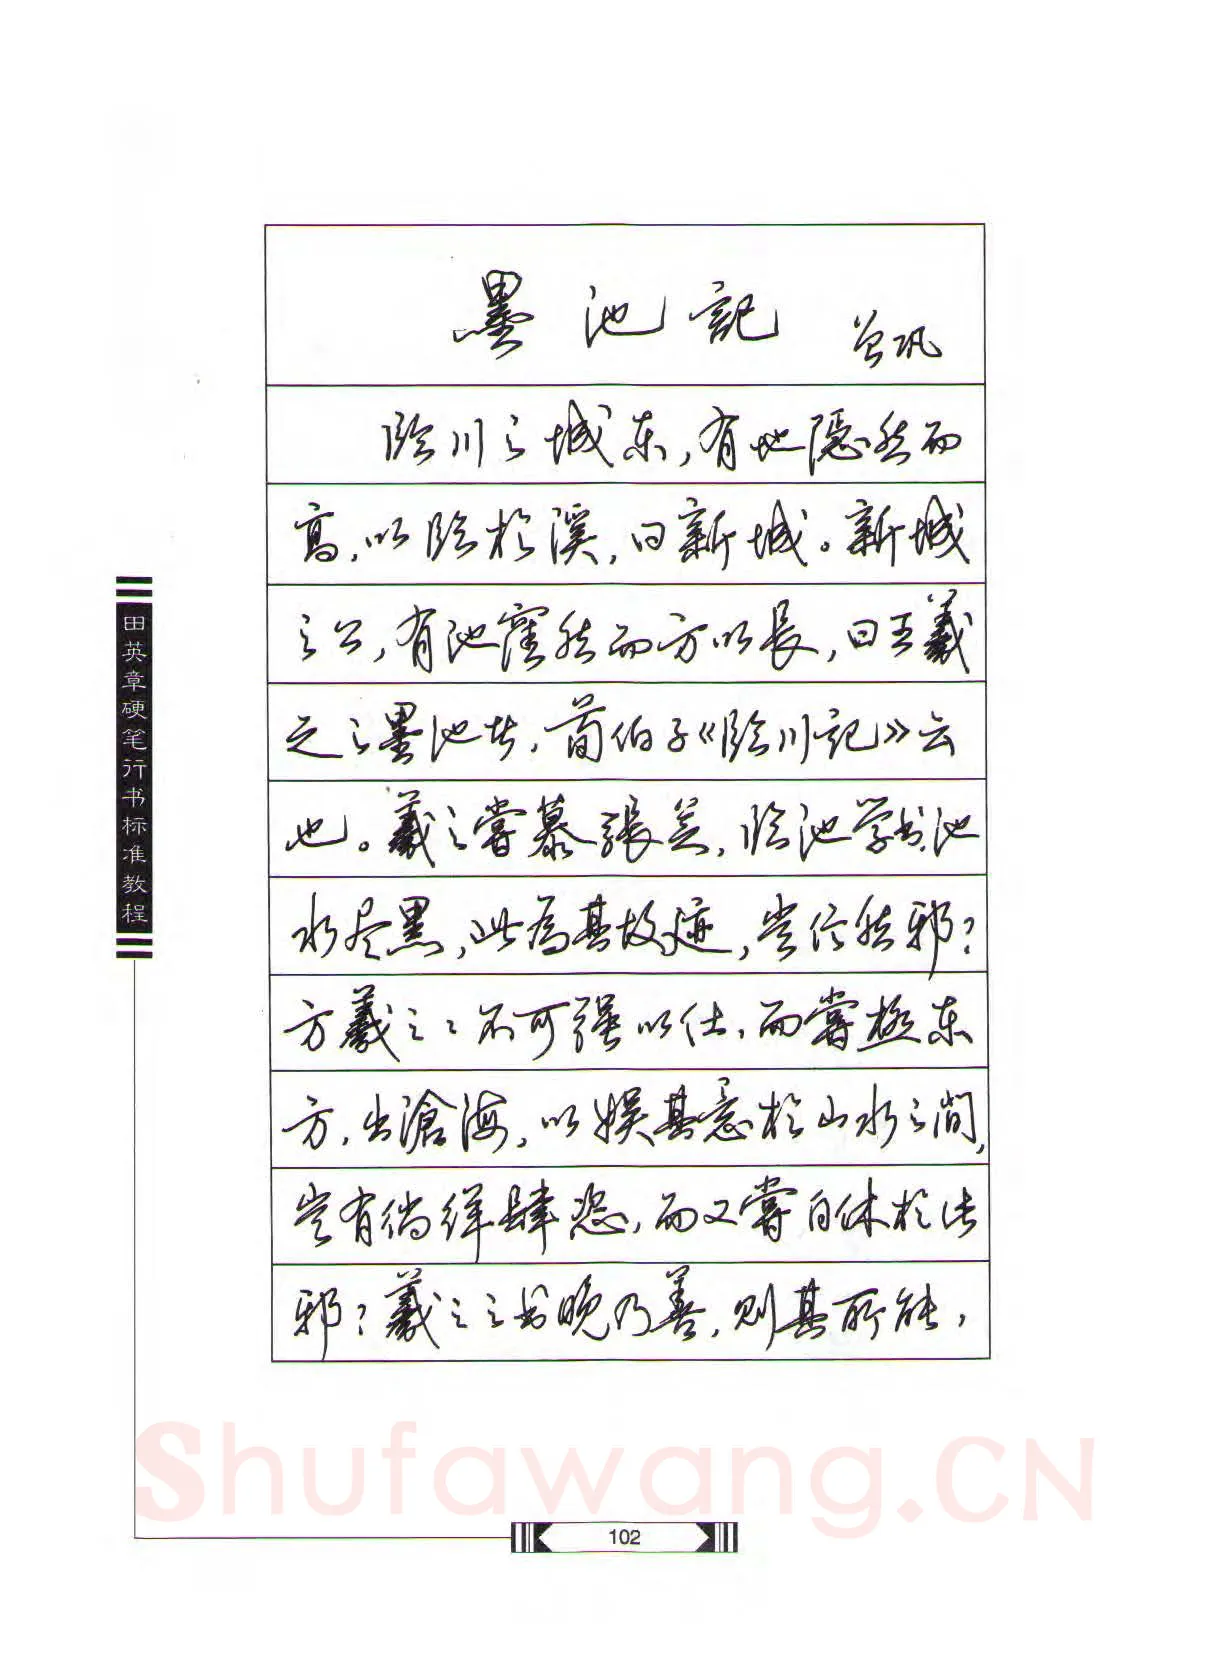 墨池記 曾巩
临川之城东，有地隐然而
高，以临於溪，曰新城。新城
之上，有池窪然而方以長，曰王羲
之之墨池者，荀伯子《临川記》云
也。羲之嘗慕張芝，临池学书，池
水尽黑，此為其故迹，豈信然邪？
方羲之之不可强以仕，而嘗極东
方，出滄海，以娱其意於山水之间，
豈有徜徉肆恣，而又嘗自休於此
邪？羲之之书晚乃善，则其所能，
田英章硬笔行书标准教程
Shufawang.CN
102